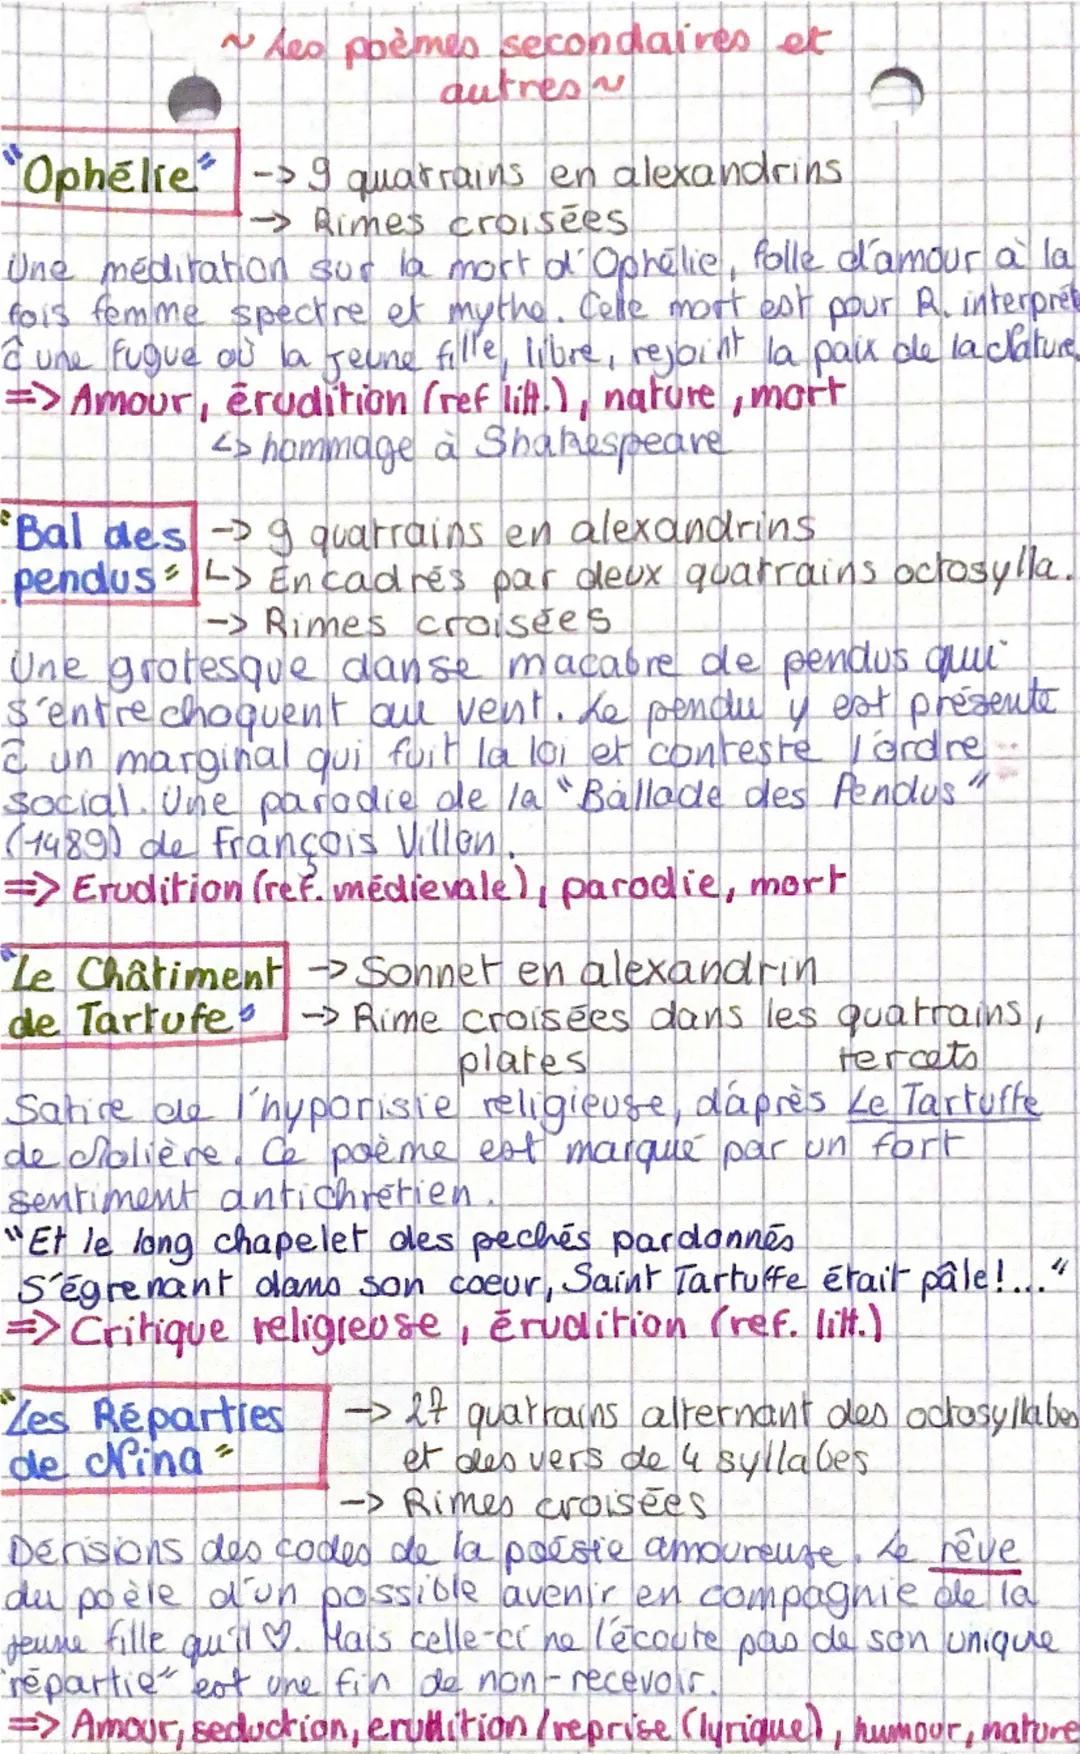 ~ Les poèmes secondaires et
autres ~
"Ophélie" -> 9 quatrains en alexandrins
-> Rimes croisées
Une méditation sur la mort d'Ophélie, folle d'amour à la
fois femme spectre et mythe. Celle mort est pour R. interprét
c̄ une fugue où la jeune fille, libre, rejoint la paix de la Nature.
=> Amour, érudition (ref litt.), nature, mort
↳ hommage à Shakespeare
"Bal des -> 9 quatrains en alexandrins
pendus" ↳ Encadrés par deux quatrains octosylla.
-> Rimes croisées
Une grotesque danse macabre de pendus qui
s'entrechoquent au vent. Le pendu y est présente
c̄ un marginal qui fuit la loi et conteste l'ordre
social. Une parodie de la "Ballade des Pendus"
(1489) de François Villon.
=> Erudition (ref. médievale), parodie, mort
"Le Châtiment -> Sonnet en alexandrin
de Tartufe" -> Rime croisées dans les quatrains,
plates tercets
Satire de l'hyporisie religieuse, d'après Le Tartuffe
de Molière. Ce poème est marqué par un fort
sentiment antichrétien.
"Et le long chapelet des pechés pardonnés
S'égrenant dans son coeur, Saint Tartuffe était pâle!..."
=> Critique religieuse, érudition (ref. litt.)
"Les Réparties -> 27 quatrains alternant des octosyllabes
de Nina" et des vers de 4 syllabes
-> Rimes croisées
Dérisions des codes de la poésie amoureuse. Le rêve
du poèle d'un possible avenir en compagnie de la
jeune fille qu'il ♡. Mais celle-ci ne l'écoute pas de son unique
"répartie" est une fin de non-recevoir.
=> Amour, seduction, erudition/reprise (lyrique), humour, nature